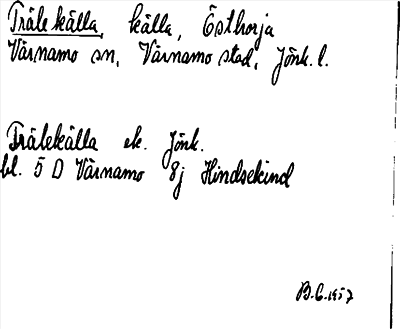 Trälekälla, källa, Östhorja
Värnamo sn, Värnamo stad, Jönk. l.
Trälekälla ek. Jönk.
bl. 5 D Värnamo 8j Hindsekind
B.C. 1957